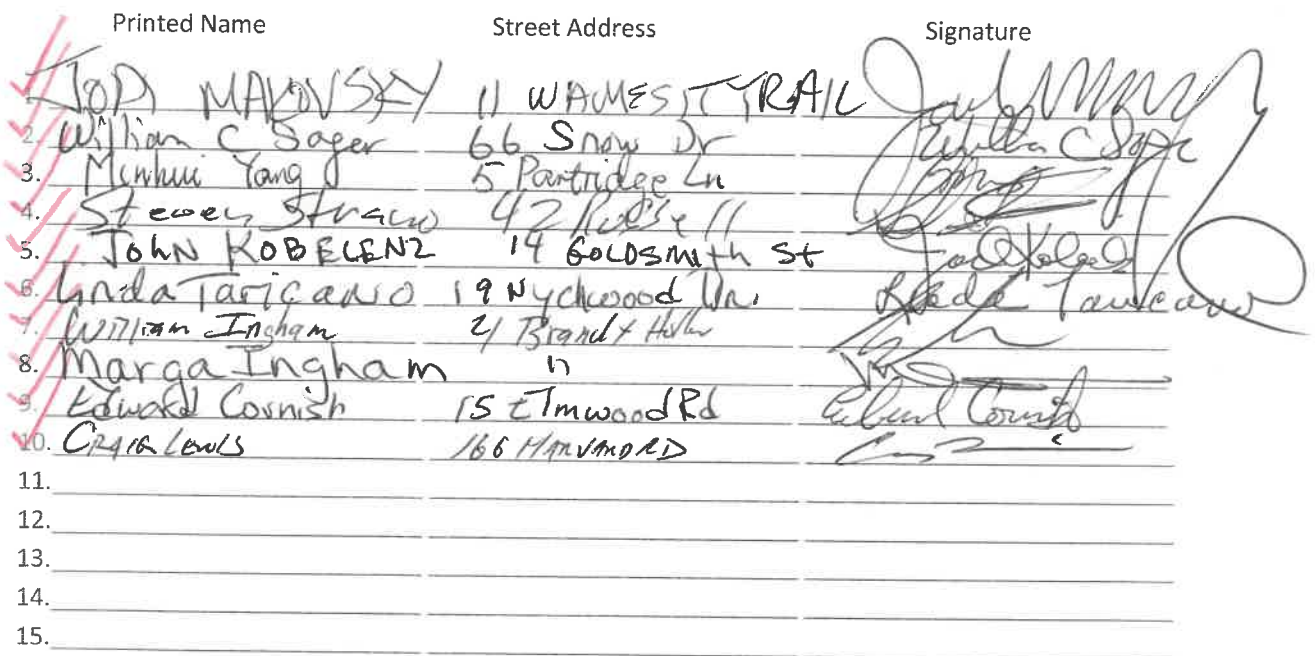 Printed Name Street Address Signature
1. JODI MAKOVSKY 11 WAMESIT TRAIL
2. William C Sager 66 Snow Dr William C Sager
3. Minhui Yang 5 Partridge Ln
4. Steven 42
5. JOHN KOBELENZ 14 GOLDSMITH St
6. Linda Taricano 19 Nychwood Dr. Linda Taricano
7. William Ingham 21 Brandt
8. Marga Ingham "
9. Edward Cornish 15 Elmwood Rd Edward Cornish
10. CRAIG LEWIS 166 HARVARD RD
11.
12.
13.
14.
15.